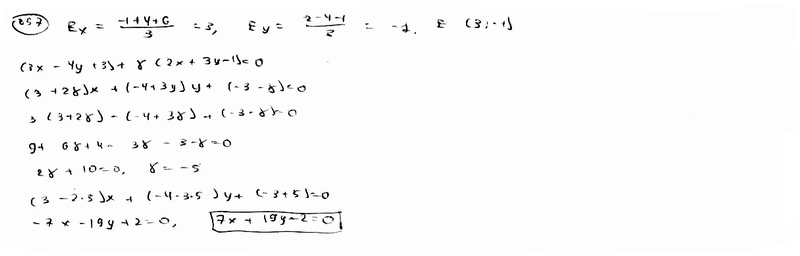 257 Ex = -1+4+6 / 3 = 3, Ey = 2-4-1 / 3 = -1. E (3; -1)
(3x - 4y + 3) + γ (2x + 3y - 1) = 0
(3 + 2γ)x + (-4 + 3γ)y + (-3 - γ) = 0
3 (3 + 2γ) - (-4 + 3γ) + (-3 - γ) = 0
9 + 6γ + 4 - 3γ - 3 - γ = 0
2γ + 10 = 0, γ = -5
(3 - 2·5)x + (-4 - 3·5)y + (-3 + 5) = 0
-7x - 19y + 2 = 0, 7x + 19y - 2 = 0